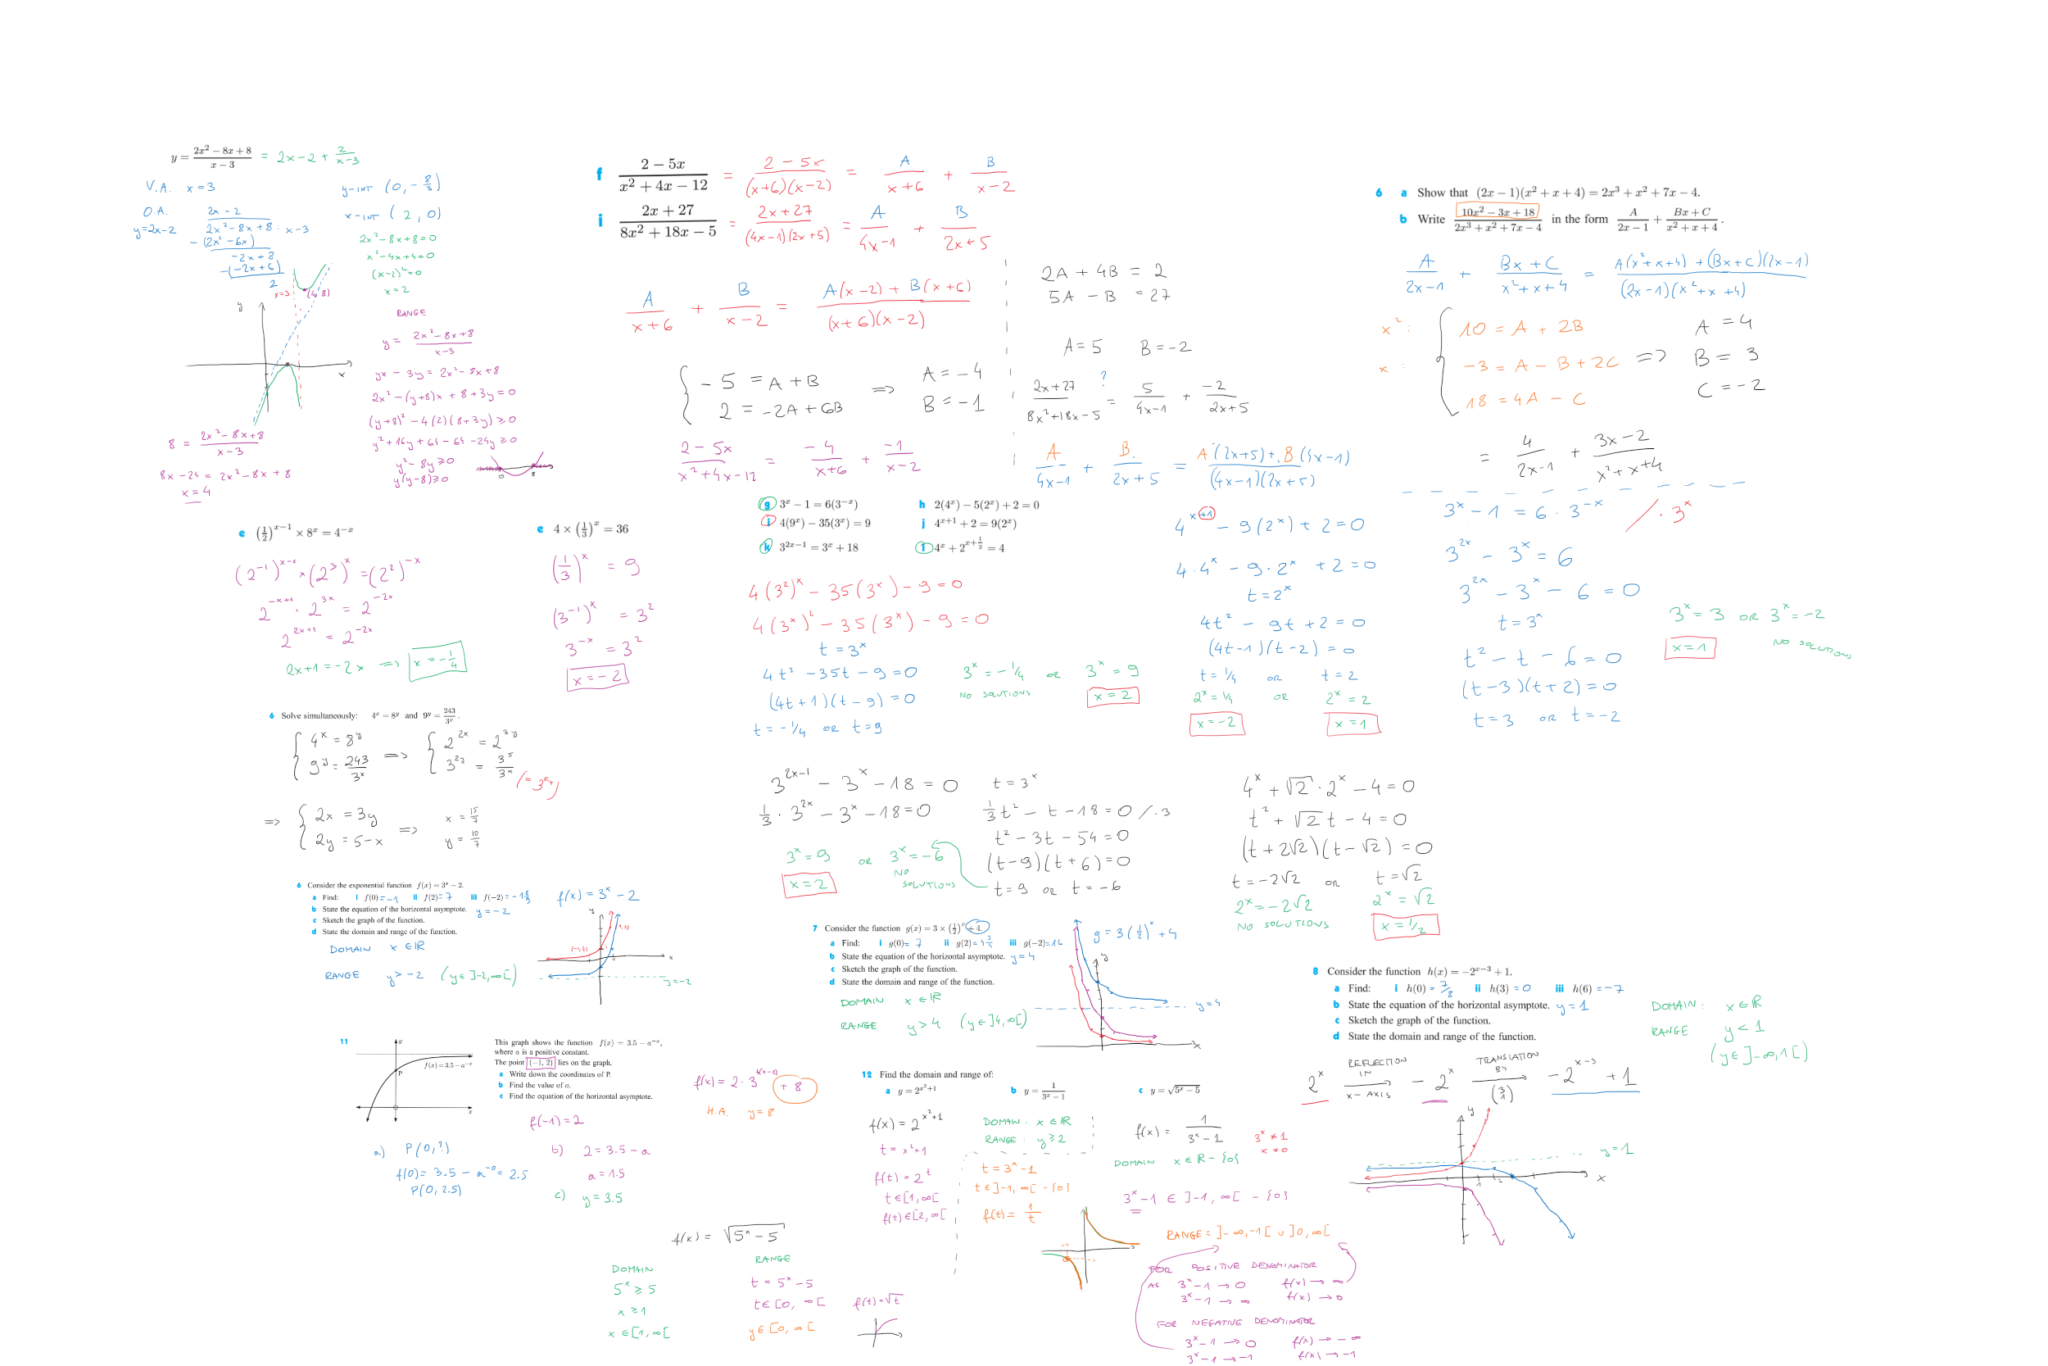 y = (2x² − 8x + 8)/(x − 3) = 2x − 2 + 2/(x−3)
V.A. x = 3
O.A. y = 2x−2
2x − 2
2x² − 8x + 8 : x − 3
− (2x² − 6x)
−2x + 8
−(−2x + 6)
2
y-INT (0, −8/3)
x-INT (2, 0)
2x² − 8x + 8 = 0
x² − 4x + 4 = 0
(x−2)² = 0
x = 2
x=3
(4,8)
y
x
RANGE
y = (2x² − 8x + 8)/(x−3)
yx − 3y = 2x² − 8x + 8
2x² − (y+8)x + 8 + 3y = 0
(y+8)² − 4(2)(8+3y) ≥ 0
y² + 16y + 64 − 64 − 24y ≥ 0
y² − 8y ≥ 0
y(y−8) ≥ 0
0 8
8 = (2x² − 8x + 8)/(x−3)
8x − 24 = 2x² − 8x + 8
x = 4
f (2 − 5x)/(x² + 4x − 12) = (2 − 5x)/((x+6)(x−2)) = A/(x+6) + B/(x−2)
i (2x + 27)/(8x² + 18x − 5) = (2x + 27)/((4x−1)(2x+5)) = A/(4x−1) + B/(2x+5)
A/(x+6) + B/(x−2) = (A(x−2) + B(x+6))/((x+6)(x−2))
{ −5 = A + B
2 = −2A + 6B
⇒ A = −4
B = −1
(2 − 5x)/(x² + 4x − 12) = −4/(x+6) + −1/(x−2)
2A + 4B = 2
5A − B = 27
A = 5 B = −2
(2x+27)/(8x²+18x−5) ?= 5/(4x−1) + −2/(2x+5)
A/(4x−1) + B/(2x+5) = (A(2x+5) + B(4x−1))/((4x−1)(2x+5))
6 a Show that (2x − 1)(x² + x + 4) = 2x³ + x² + 7x − 4.
b Write (10x² − 3x + 18)/(2x³ + x² + 7x − 4) in the form A/(2x − 1) + (Bx + C)/(x² + x + 4).
A/(2x−1) + (Bx + C)/(x² + x + 4) = (A(x²+x+4) + (Bx+C)(2x−1))/((2x−1)(x²+x+4))
x²: 10 = A + 2B
x: −3 = A − B + 2C
18 = 4A − C
⇒ A = 4
B = 3
C = −2
= 4/(2x−1) + (3x−2)/(x²+x+4)
e (1/2)^(x−1) × 8^x = 4^(−x)
(2^−1)^(x−1) × (2³)^x = (2²)^−x
2^(−x+1) · 2^(3x) = 2^(−2x)
2^(2x+1) = 2^(−2x)
2x+1 = −2x ⇒ x = −1/4
e 4 × (1/3)^x = 36
(1/3)^x = 9
(3^−1)^x = 3²
3^−x = 3²
x = −2
g 3^x − 1 = 6(3^−x) h 2(4^x) − 5(2^x) + 2 = 0
i 4(9^x) − 35(3^x) = 9 j 4^(x+1) + 2 = 9(2^x)
k 3^(2x−1) = 3^x + 18 l 4^x + 2^(x+1/2) = 4
4(3²)^x − 35(3^x) − 9 = 0
4(3^x)² − 35(3^x) − 9 = 0
t = 3^x
4t² − 35t − 9 = 0
(4t+1)(t−9) = 0
t = −1/4 OR t = 9
3^x = −1/4 OR 3^x = 9
NO SOLUTIONS x = 2
4^(x+1) − 9(2^x) + 2 = 0
4·4^x − 9·2^x + 2 = 0
t = 2^x
4t² − 9t + 2 = 0
(4t−1)(t−2) = 0
t = 1/4 OR t = 2
2^x = 1/4 OR 2^x = 2
x = −2 x = 1
3^x − 1 = 6 · 3^−x / · 3^x
3^2x − 3^x = 6
3^2x − 3^x − 6 = 0
t = 3^x
t² − t − 6 = 0
(t−3)(t+2) = 0
t = 3 OR t = −2
3^x = 3 OR 3^x = −2
x = 1 NO SOLUTIONS
6 Solve simultaneously: 4^x = 8^y and 9^y = 243/3^x.
{ 4^x = 8^y
9^y = 243/3^x
⇒ { 2^2x = 2^3y
3^2y = 3^5/3^x
⇒ { 2x = 3y
2y = 5−x
⇒ x = 15/7
y = 10/7
3^(2x−1) − 3^x − 18 = 0
1/3 · 3^2x − 3^x − 18 = 0
t = 3^x
1/3 t² − t − 18 = 0 /·3
t² − 3t − 54 = 0
(t−9)(t+6) = 0
t = 9 OR t = −6
3^x = 9 OR 3^x = −6
x = 2 NO SOLUTIONS
4^x + √2·2^x − 4 = 0
t² + √2 t − 4 = 0
(t + 2√2)(t − √2) = 0
t = −2√2 OR t = √2
2^x = −2√2 2^x = √2
NO SOLUTIONS x = 1/2
6 Consider the exponential function f(x) = 3^x − 2.
a Find: i f(0) = −1 ii f(2) = 7 iii f(−2) = −1 8/9
b State the equation of the horizontal asymptote. y = −2
c Sketch the graph of the function.
d State the domain and range of the function.
DOMAIN x ∈ ℝ
RANGE y > −2 (y ∈ ]−2, ∞[)
f(x) = 3^x − 2
y
x
y = −2
7 Consider the function g(x) = 3 × (1/2)^x + 4.
a Find: i g(0) = 7 ii g(2) = 4 3/4 iii g(−2) = 16
b State the equation of the horizontal asymptote. y = 4
c Sketch the graph of the function.
d State the domain and range of the function.
DOMAIN x ∈ ℝ
RANGE y > 4 (y ∈ ]4, ∞[)
g = 3(1/2)^x + 4
y
y = 4
x
8 Consider the function h(x) = −2^(x−3) + 1.
a Find: i h(0) = 7/8 ii h(3) = 0 iii h(6) = −7
b State the equation of the horizontal asymptote. y = 1
c Sketch the graph of the function.
d State the domain and range of the function.
DOMAIN: x ∈ ℝ
RANGE y < 1
(y ∈ ]−∞, 1[)
2^x REFLECTION IN x-AXIS → −2^x TRANSLATION BY (3 1) → −2^(x−3) + 1
y
y = 1
x
11
y
P
f(x) = 3.5 − a^−x
x
This graph shows the function f(x) = 3.5 − a^−x,
where a is a positive constant.
The point (−1, 2) lies on the graph.
a Write down the coordinates of P.
b Find the value of a.
c Find the equation of the horizontal asymptote.
f(−1) = 2
a) P(0, ?)
f(0) = 3.5 − a^−0 = 2.5
P(0, 2.5)
b) 2 = 3.5 − a
a = 1.5
c) y = 3.5
+ 8
H.A. y = 8
12 Find the domain and range of:
a y = 2^(x²+1) b y = 1/(3^x − 1) c y = √(5^x − 5)
f(x) = 2^(x²+1)
t = x²+1
f(t) = 2^t
t ∈ [1, ∞[
f(t) ∈ [2, ∞[
DOMAIN: x ∈ ℝ
RANGE: y ≥ 2
t = 3^x − 1
t ∈ ]−1, ∞[ − {0}
f(t) = 1/t
f(x) = 1/(3^x − 1)
3^x ≠ 1
x ≠ 0
DOMAIN x ∈ ℝ − {0}
3^x − 1 ∈ ]−1, ∞[ − {0}
RANGE = ]−∞, −1[ ∪ ]0, ∞[
FOR POSITIVE DENOMINATOR
AS 3^x − 1 → 0 f(x) → ∞
3^x − 1 → ∞ f(x) → 0
FOR NEGATIVE DENOMINATOR
3^x − 1 → 0 f(x) → −∞
3^x − 1 → −1 f(x) → −1
f(x) = √(5^x − 5)
DOMAIN
5^x ≥ 5
x ≥ 1
x ∈ [1, ∞[
RANGE
t = 5^x − 5
t ∈ [0, ∞[
y ∈ [0, ∞[
f(t) = √t